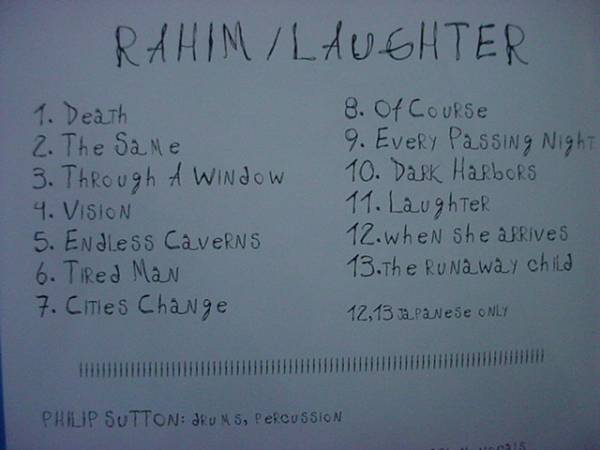 RAHIM / LAUGHTER
1. Death
2. The Same
3. Through A Window
4. Vision
5. Endless Caverns
6. Tired Man
7. Cities Change
8. Of Course
9. Every Passing Night
10. Dark Harbors
11. Laughter
12. when she arrives
13. the Runaway child
12,13 Japanese only
PHILIP SUTTON: drums, percussion